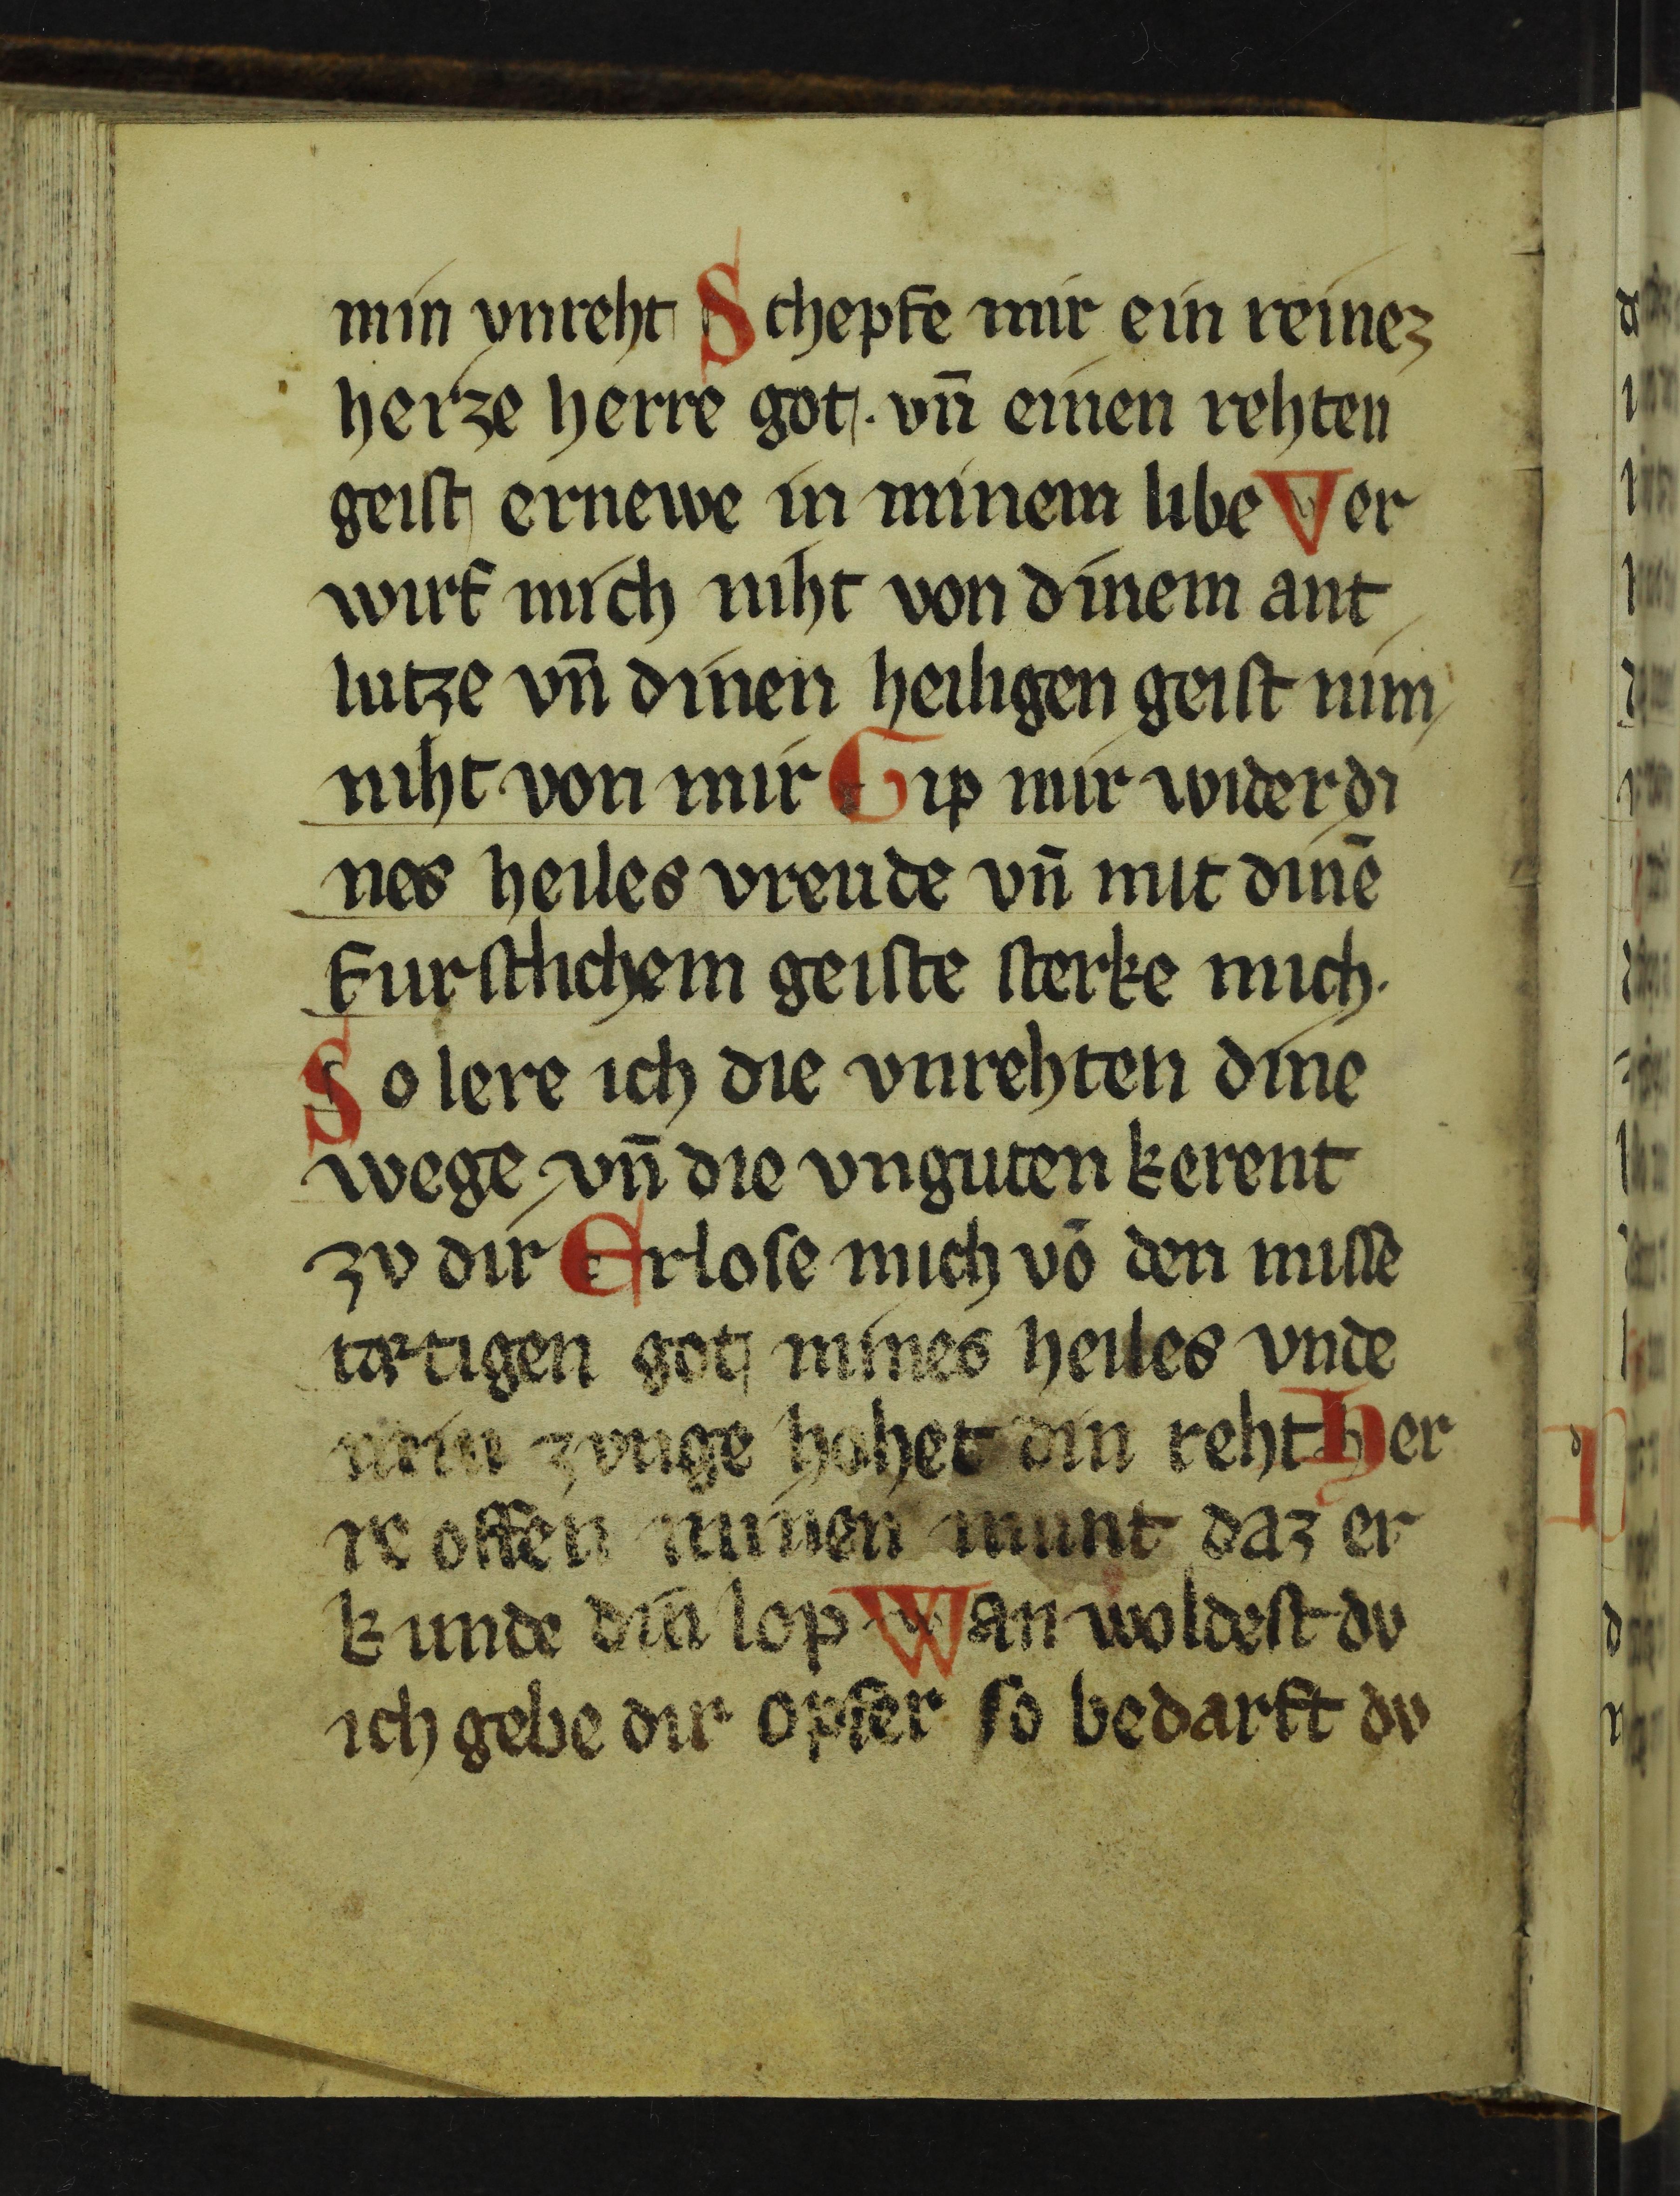 min vnreht Schepfe mir ein reinez
herze herre got. vn̄ einen rehten
geiſt ernewe in minem libe Ver
wirf mich niht von dinem ant
lutze vn̄ dinen heiligen geiſt nim
niht von mir Gip mir wider di
nes heiles vreude vn̄ mit dinē
furſtlichem geiſte ſterke mich.
So lere ich die vnrehten dine
wege vn̄ die vnguten kerent
zv dir Erloſe mich vō den miſſe
tætigen got mines heiles vnde
min zvnge hohet din reht Her
re offen minen munt daz er
kunde din lop Wan woldeſt dv
ich gebe dir opfer ſo bedarft dv